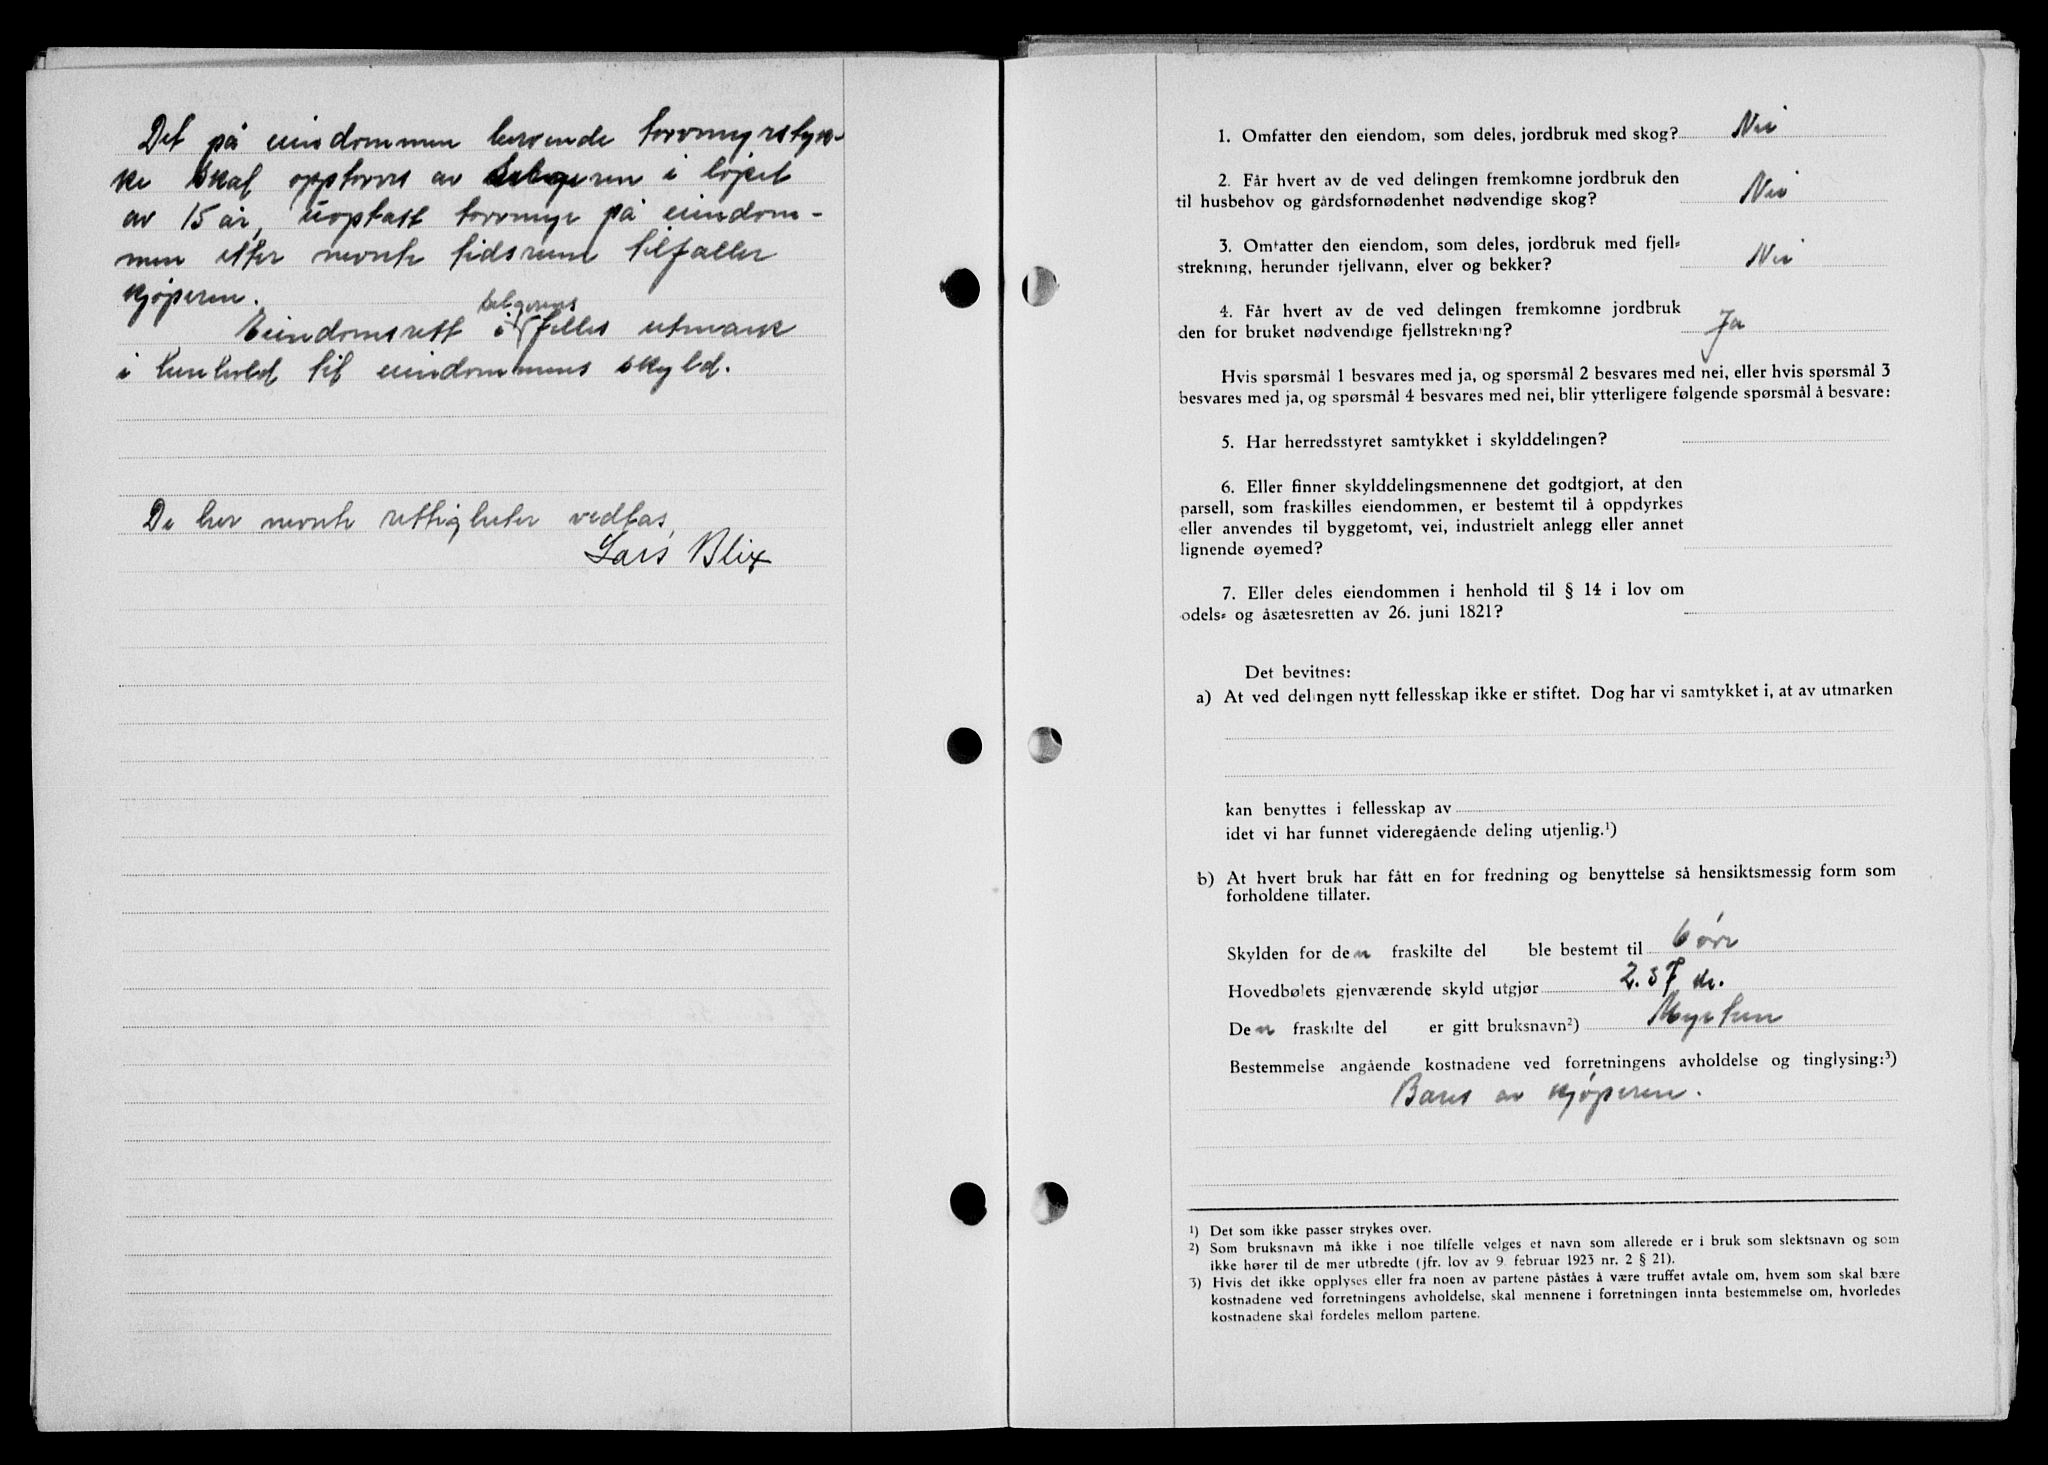 Det på eiendommen beroende torvmyrstyk-
ke skal opptorves av selgeren i løpet
av 15 år, uoptatt torvmyr på eiendom-
men etter nevnte tidsrum tilfaller
kjøperen.
selgerens
Eiendomsrett i felles utmark
i henhold til eiendommens skyld.
De her nevnte rettigheter vedtas
Lars Blix
1. Omfatter den eiendom, som deles, jordbruk med skog? Nei
2. Får hvert av de ved delingen fremkomne jordbruk den
til husbehov og gårdsfornødenhet nødvendige skog? Nei
3. Omfatter den eiendom, som deles, jordbruk med fjell-
strekning, herunder fjellvann, elver og bekker? Nei
4. Får hvert av de ved delingen fremkomne jordbruk
den for bruket nødvendige fjellstrekning? Ja
Hvis spørsmål 1 besvares med ja, og spørsmål 2 besvares med nei, eller hvis spørsmål 3
besvares med ja, og spørsmål 4 besvares med nei, blir ytterligere følgende spørsmål å besvare:
5. Har herredsstyret samtykket i skylddelingen?
6. Eller finner skylddelingsmennene det godtgjort, at den
parsell, som fraskilles eiendommen, er bestemt til å oppdyrkes
eller anvendes til byggetomt, vei, industrielt anlegg eller annet
lignende øyemed?
7. Eller deles eiendommen i henhold til § 14 i lov om
odels- og åsætesretten av 26. juni 1821?
Det bevitnes:
a) At ved delingen nytt fellesskap ikke er stiftet. Dog har vi samtykket i, at av utmarken
kan benyttes i fellesskap av
idet vi har funnet videregående deling utjenlig.¹)
b) At hvert bruk har fått en for fredning og benyttelse så hensiktsmessig form som
forholdene tillater.
Skylden for den fraskilte del ble bestemt til 6 øre
Hovedbølets gjenværende skyld utgjør 2.57 kr.
Den fraskilte del er gitt bruksnavn²) Myrtun
Bestemmelse angående kostnadene ved forretningens avholdelse og tinglysing:³)
Bæres av kjøperen.
¹) Det som ikke passer strykes over.
²) Som bruksnavn må ikke i noe tilfelle velges et navn som allerede er i bruk som slektsnavn og som
ikke hører til de mer utbredte (jfr. lov av 9. februar 1923 nr. 2 § 21).
³) Hvis det ikke opplyses eller fra noen av partene påståes å være truffet avtale om, hvem som skal bære
kostnadene ved forretningens avholdelse, skal mennene i forretningen innta bestemmelse om, hvorledes
kostnadene skal fordeles mellom partene.